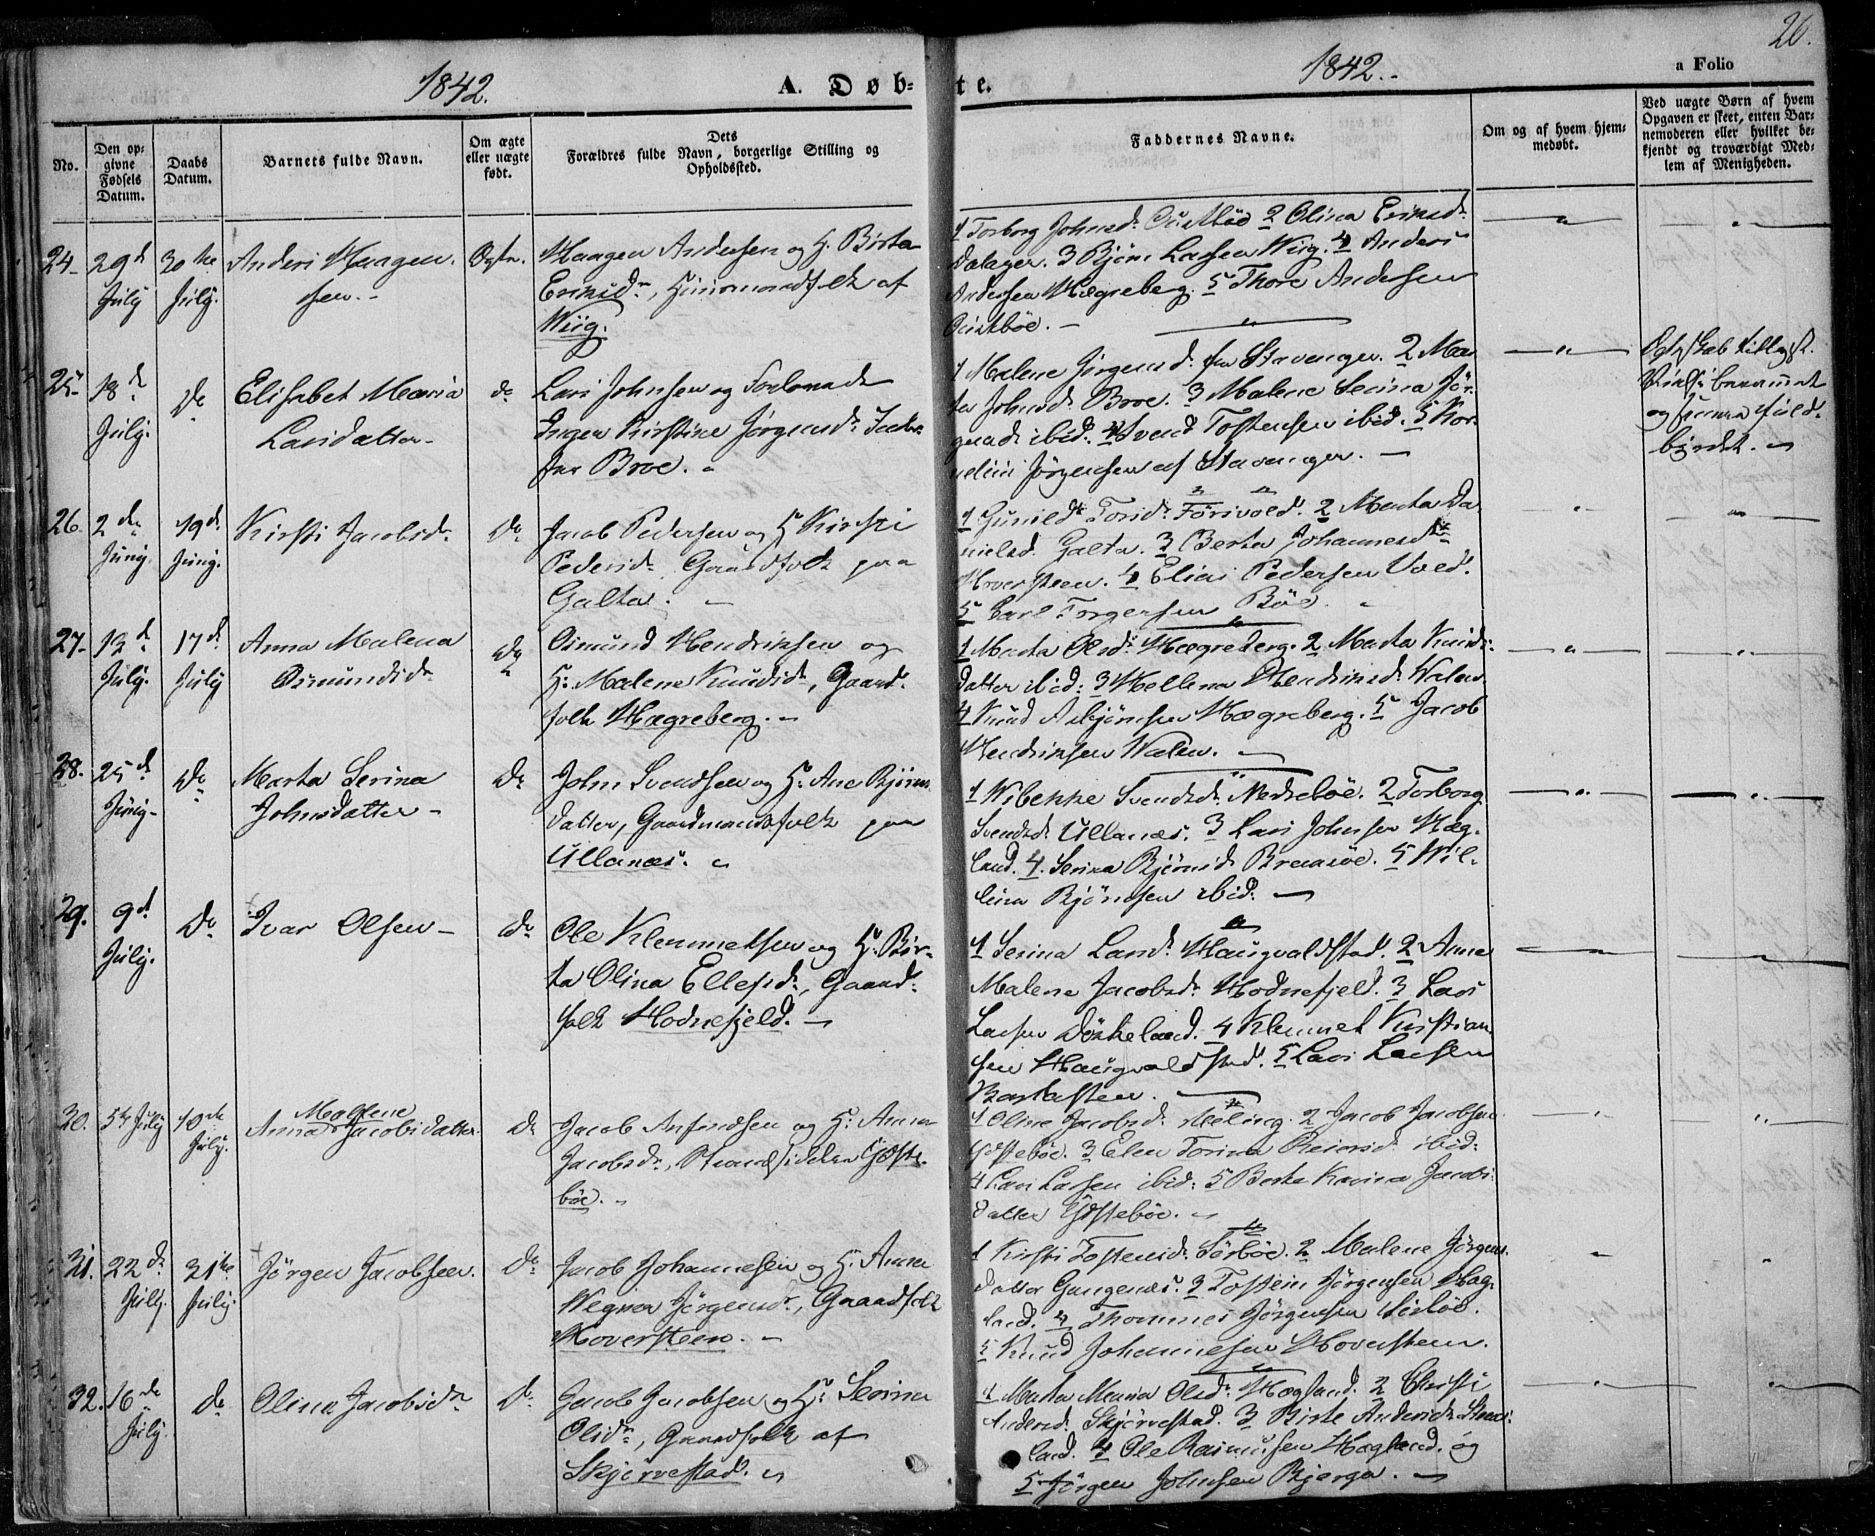 26.
1842.
A. Døb-
te.
1842.
a Folio
No.
Den op-
givne
Fødsels
Datum.
Daabs
Datum.
Barnets fulde Navn.
Om ægte
eller uægte
født.
Dets
Forældres fulde Navn, borgerlige Stilling og
Opholdssted.
Faddernes Navne.
Om og af hvem hjem-
medøbt.
Ved uægte Børn af hvem
Opgaven er skeet, enten Bar-
nemoderen eller hvilket be-
kjendt og troværdigt Med-
lem af Menigheden.
24
29d
July
30te
July.
Anders Haagen
sen.
Ægte.
Haagen Andersen og H. Birta
Eriksdr, Huusmandsfolk af
Wiig.
1 Torborg Johnsd. Austbøe 2 Olina Eriksdr
Dalager. 3 Bjørn Larsen Wiig. 4 Anders
Andersen Hægreberg. 5 Thore Andersen
Austbøe.
25
18d
July.
do
Elisabet Maria
Larsdatter
do
Lars Johnsen og Forlovede
Inger Kirstine Jørgensdr
Broe.
1 Malene Jørgensd. fra Stavanger. 2 Mar
ta Johnsd. Broe. 3 Malene Serina Jør-
gensd. ibid. 4 Svend Tostensen ibid. 5 Kor-
nelius Jørgensen af Stavanger.
Ægteskab tillyst.
og
byrdet.
26.
2den
Juny.
19d.
Juny.
Kirsti Jacobsdr
do
Jacob Pedersen og H. Kirsti
Pedersdr Gaardfolk paa
Galta.
1 Gunild Torsd. Førisvold. 2 Marta Da
nielsd. Galta. 3 Berta Johannesdr
Hoversteen. 4 Elias Pedersen Voed.
5 Carl Torgersen Bøe.
27
12d
July.
17d.
July
Anna Malena
Osmundsdr
do
Osmund Hendriksen og
H: Malene Knudsdr, Gaard-
folk Hægreberg.
1 Marta Olsdr Hægreberg. 2 Marta Knuds-
datter ibid: 3 Hellena Hendriksdr Walen
4 Knud Asbjørnsen Hægreberg. 5 Jacob
Hendriksen Walen.
28.
25d
Juny
do
Marta Serina
Johnsdatter
do
John Svendsen og H: Ane Bjørns
datter, Gaardmandsfolk paa
Ullanæs.
1 Wibekke Svendsdr Nedrebøe. 2 Torborg
Svendsd. Ullanæs. 3 Lars Johnsen Hæg-
land. 4. Serina Bjørnsd. 5 Wil-
Bjørnsen ibid.
29.
9d
July.
do
Ivar Olsen
do
Ole Klemmetsen og H. Bir-
ta Olina Ellefsdr, Gaard-
folk Hodnefjeld.
1 Serina Larsd. Haugvaldstad. 2 Anne
Malene Jacobsdr Hodnefjeld. 3 Lars
Larsen Døskeland. 4 Klemmet Kristian
sen Haugvaldstad. 5 Lars Larsen
30.
5te July
10de
July.
Malene
Anna Jacobsdatter
do
Jacob Anfindsen og H: Anna
Jacobsdr, Strandsiddere Østre-
bøe.
1 Oline Jacobsd. Meling. 2 Jacob Jacobsen
Østebøe. 3 Elen Torina Reiersd. ibid:
4 Lars Larsen ibid: 5 Berta Karina Jacobs-
datter Østebøe.
31.
22d.
July.
31te
July.
Jørgen Jacobsen.
do
Jacob Johannesen og H. Anna
Jørgensdr, Gaardfolk
Hoversteen.
1 Kirsti Tostensdr Sørbøe. 2 Malene Jørgens
datter Gangenæs. 3 Tostein Jørgensen Hæg-
land. 4 Thommes Jørgensen Sørbøe.
5 Knud Johannesen Hoversteen.
32.
16de
July.
do
Olina Jacobsdr
do
Jacob Jacobsen og H: Serina
Olsdr, Gaardfolk af
Skjørvestad.
1 Marta Maria Olsdr Hægland. 2 Christi
Andersd. Skjørvestad. 3 Birte Andersdr
land. 4 Ole Rasmusen Hægland. og
5 Jørgen Johnsen Bjerga.